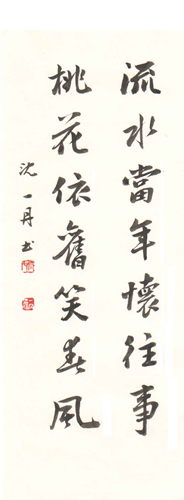 流水當年懷往事
桃花依舊笑春風
沈一丹书